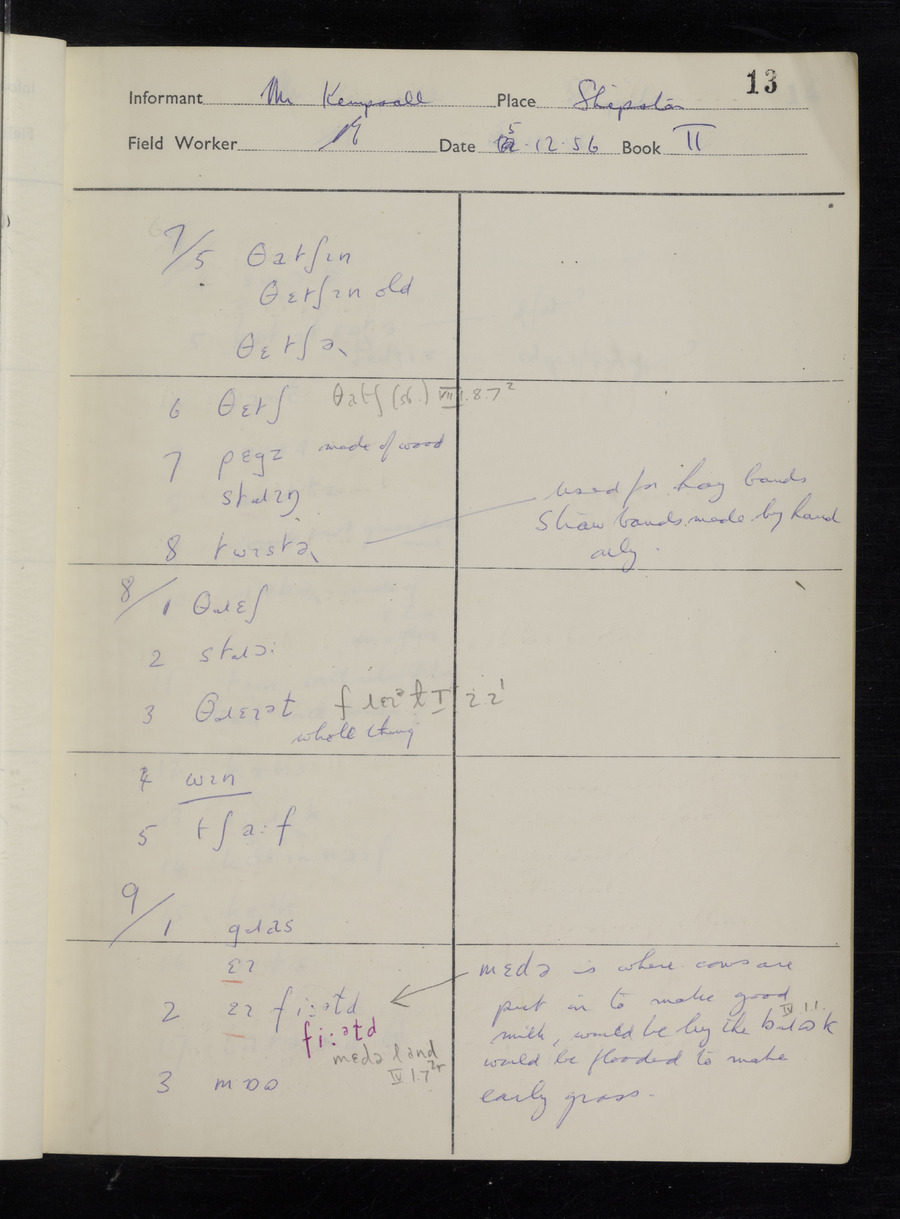 13
Informant Mr Kempsall Place Shipston
Field Worker Date 5·12·56 Book II
7/5 θatʃɪn
θɛtʃɪn old
θɛtʃə
6 θɛtʃ θatʃ (sb.) VII 1.8.7²
7 pɛgz made of wood
8 twɪstə
used for hay bands
Straw bands made by hand
only.
8/ 1 θɹɛʃ
2 stɹɔ:
3
whole thing
4 wɪn
5 tʃa:f
9/ 1 gɹas
ɛɪ
2 ɛɪ fi:əɫd
fi:əɫd
mɛdə land
IV 1.7
3 mɒʊ
mɛdə is where cows are
put in to make good
milk, would be by the IV 1.1.
would be flooded to make
early grass.